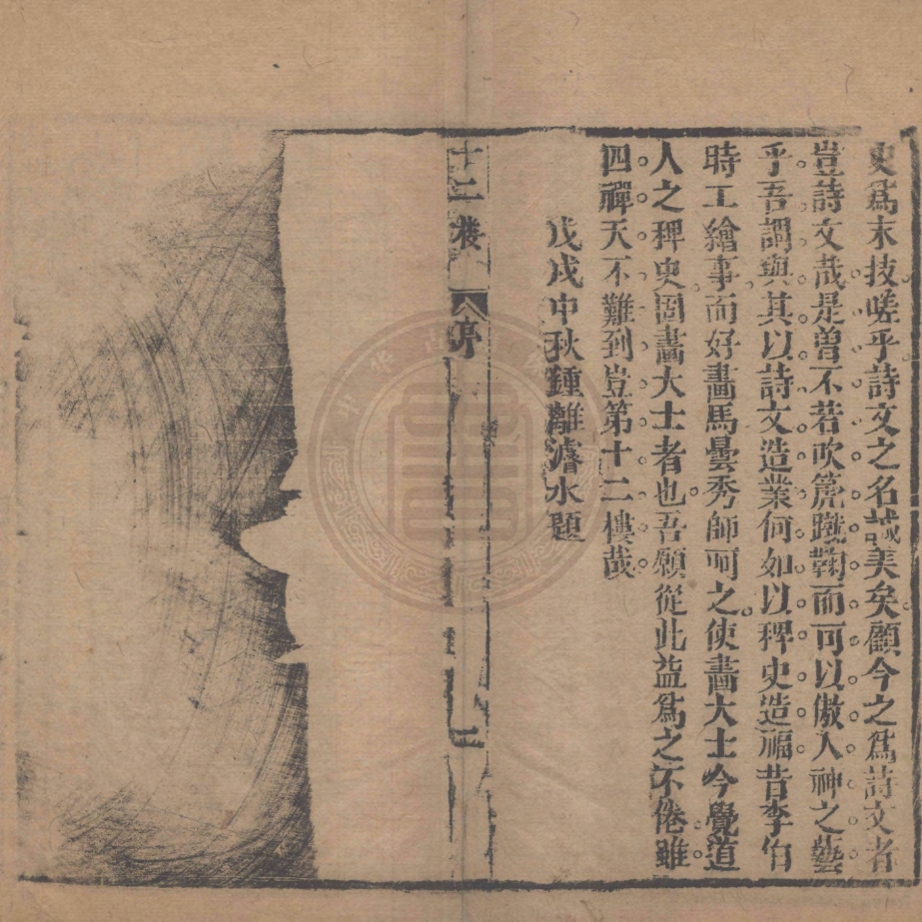 史爲末技嗟乎詩文之名誠美矣顧今之爲詩文者
豈詩文哉是曾不若吹篪蹴鞠而可以傲人神之藝
乎吾謂與其以詩文造業何如以稗史造福昔李伯
時工繪事而好畵馬曇秀師呵之使畵大士今覺道
人之稗史固畵大士者也吾願從此益爲之不倦雖
四禪天不難到豈第十二樓哉
戊戌中秋鍾離濬水題
十二楼
序
二